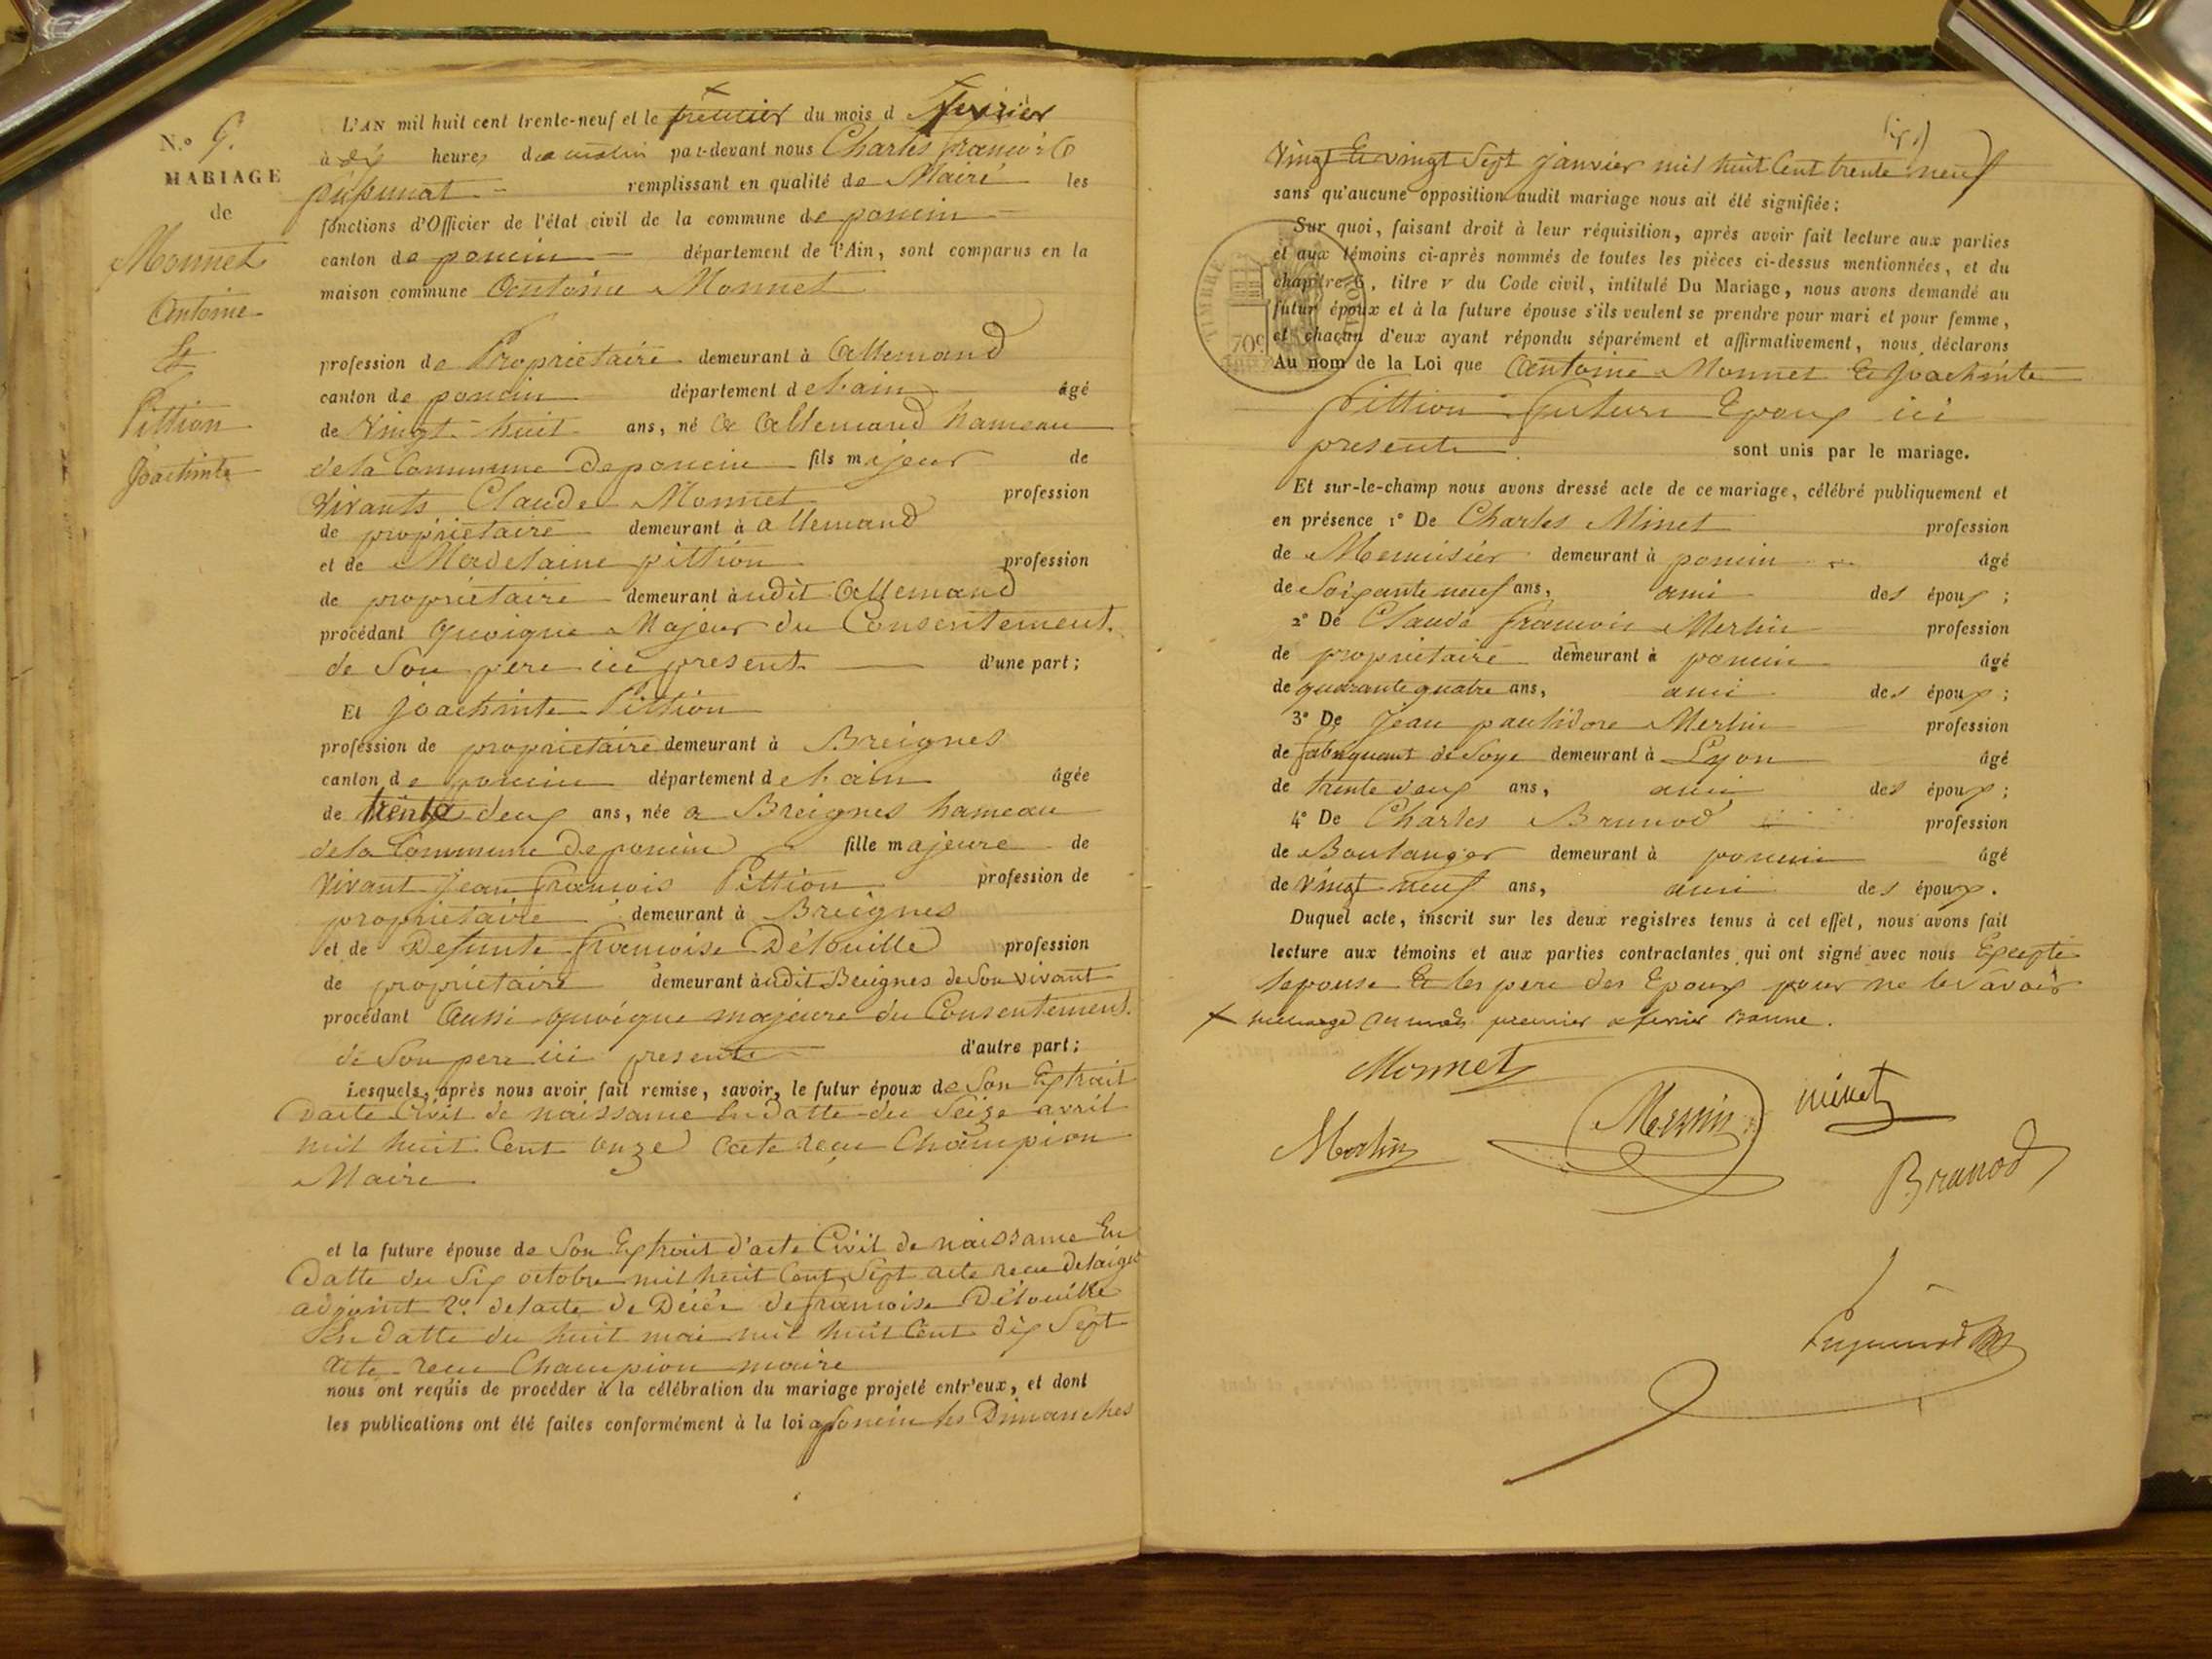 N.o 9.
MARIAGE
de
Monnet
Antoine
Et
Pittion
Joachinte
L'AN mil huit cent trente-neuf et le premier du mois d fevrier
à dix heures du matin par-devant nous Charles françois
remplissant en qualité de Maire les
fonctions d'Officier de l'état civil de la commune de poncin
canton de poncin département de l'Ain, sont comparus en la
maison commune Antoine Monnet
profession de Propriétaire demeurant à Allemand
canton de poncin département de l'ain âgé
de vingt huit ans, né a Allemand hameau
de la Commune de poncin fils majeur de
vivants Claude Monnet profession
de propriétaire demeurant à allemand
et de Madelaine pittion profession
de propriétaire demeurant àudit Allemand
procédant quoique Majeur du Consentement
de Son pere ici present d'une part;
Et Joachinte Pittion
profession de propriétaire demeurant à Breignes
canton de poncin département de l'ain âgée
de trente deux ans, née a Breignes hameau
de la Commune de poncin fille majeure de
vivant jean françois Pittion profession de
propriétaire demeurant à Breignes
et de Defunte françoise Détouille profession
de propriétaire demeurant àudit Breignes de Son vivant
procédant aussi quoique majeure du Consentement
de Son pere ici present d'autre part;
Lesquels, après nous avoir fait remise, savoir, le futur époux de Son Extrait
dacte Civil de naissance En datte du Seize avril
mil huit Cent onze acte recu Champion
Maire
et la future épouse de Son Extrait d'acte Civil de naissance En
datte du Six octobre mil huit Cent Sept acte recu
adjoint 2o. de lacte de Décés de françoise Détouille
En datte du huit mai mil huit Cent dix Sept
acte recu Champion maire
nous ont requis de procéder à la célébration du mariage projeté entr'eux, et dont
les publications ont été faites conformément à la loi a poncin les Dimanches
vingt Et vingt Sept janvier mil huit Cent trente neuf
sans qu'aucune opposition audit mariage nous ait été signifiée;
Sur quoi, faisant droit à leur réquisition, après avoir fait lecture aux parties
et aux témoins ci-après nommés de toutes les pièces ci-dessus mentionnées, et du
chapitre 6, titre v du Code civil, intitulé Du Mariage, nous avons demandé au
futur époux et à la future épouse s'ils veulent se prendre pour mari et pour femme,
et chacun d'eux ayant répondu séparément et affirmativement, nous déclarons
Au nom de la Loi que Antoine Monnet Et Joachinte
Pittion futurs Epoux ici
presents sont unis par le mariage.
TIMBRE ROYAL
70c
Et sur-le-champ nous avons dressé acte de ce mariage, célébré publiquement et
en présence 1o De Charles Minet profession
de Menuisier demeurant à poncin âgé
de Soixante neuf ans, ami des époux;
2o De Claude françois Merlin profession
de propriétaire demeurant à poncin âgé
de quarante quatre ans, ami des époux;
3o De Jean paulidore Merlin profession
de fabriquant de Soye demeurant à Lyon âgé
de trente deux ans, ami des époux;
4o De Charles Brunod profession
de Boulanger demeurant à poncin âgé
de vingt neuf ans, ami des époux.
Duquel acte, inscrit sur les deux registres tenus à cet effet, nous avons fait
lecture aux témoins et aux parties contractantes qui ont signé avec nous Excepté
lepouse Et les pere des Epoux pour ne le Savoir
premier fevrier Bonne.
Monnet
Merlin
Merlin
minet
Brunod